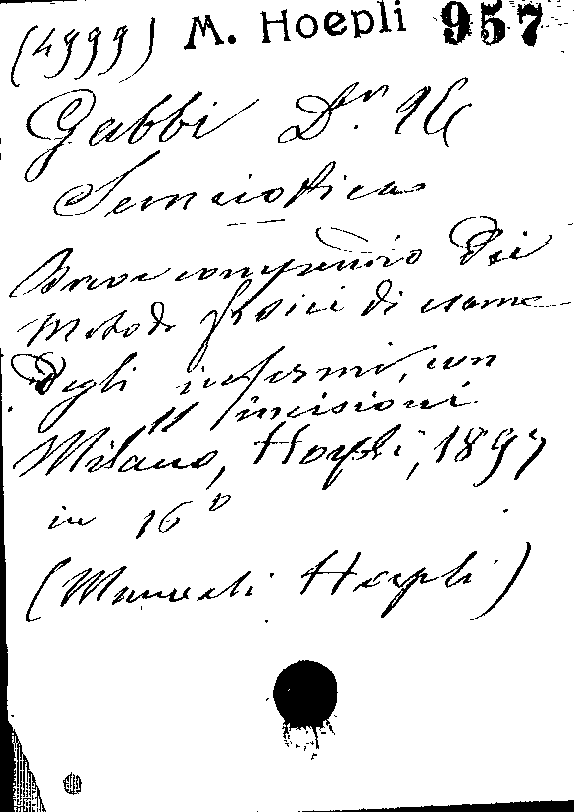 (4999) M. Hoepli 957
Gabbi Dr. U
Semeiotica
Breve compendio dei
Metodi fisici di esame
degli infermi, con
11 incisioni
Milano, Hoepli, 1897
in 16°
(Manuali Hoepli)